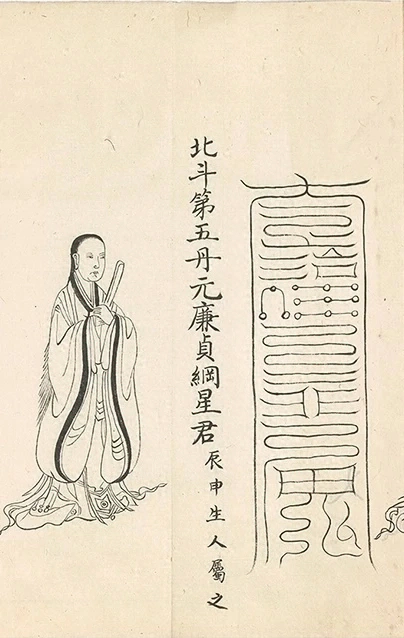 北斗第五丹元廉貞綱星君辰申生人屬之